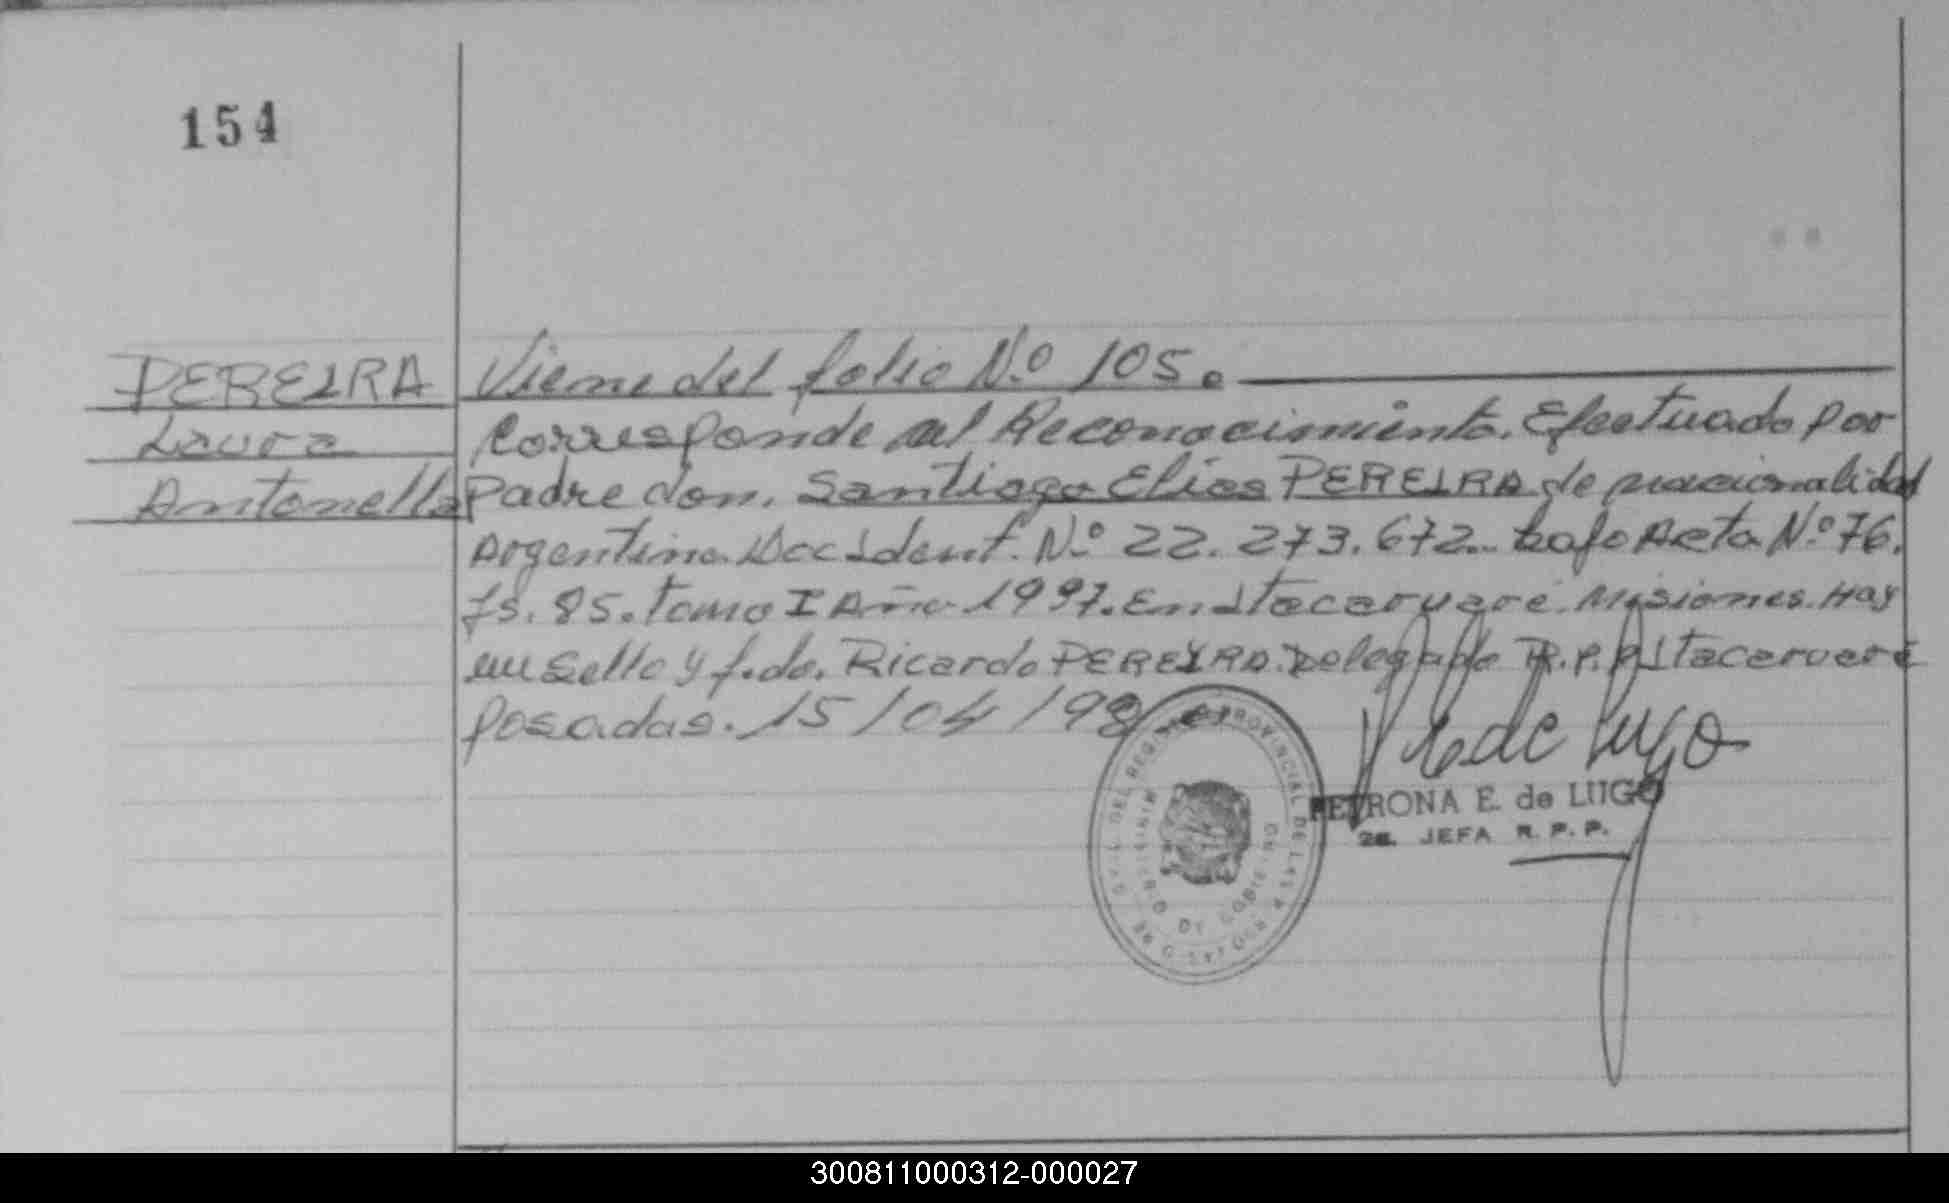 154
PEREIRA
Laura
Antonella
Viene del folio N.º 105.
Corresponde al Reconocimiento. Efectuado por
Padre don. Santiago Elias PEREIRA de nacionalidad
Argentina Doc Ident. N.º 22.273.672.. bajo Acta N.º 76.
fs. 85. tomo I Año 1997. En Itacaruaré. Misiones. Hay
un sello y f.do. Ricardo PEREYRA. Delegado R.P.P. Itacaruaré
Posadas. 15/04/98
PETRONA E. de LUGO
2a. JEFA R. P. P.
PROVINCIAL DE LAS
DE GOBIERNO
300811000312-000027